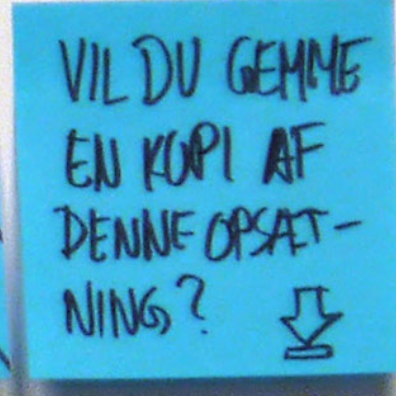 VIL DU GEMME
EN KOPI AF
DENNE OPSÆT-
NING?